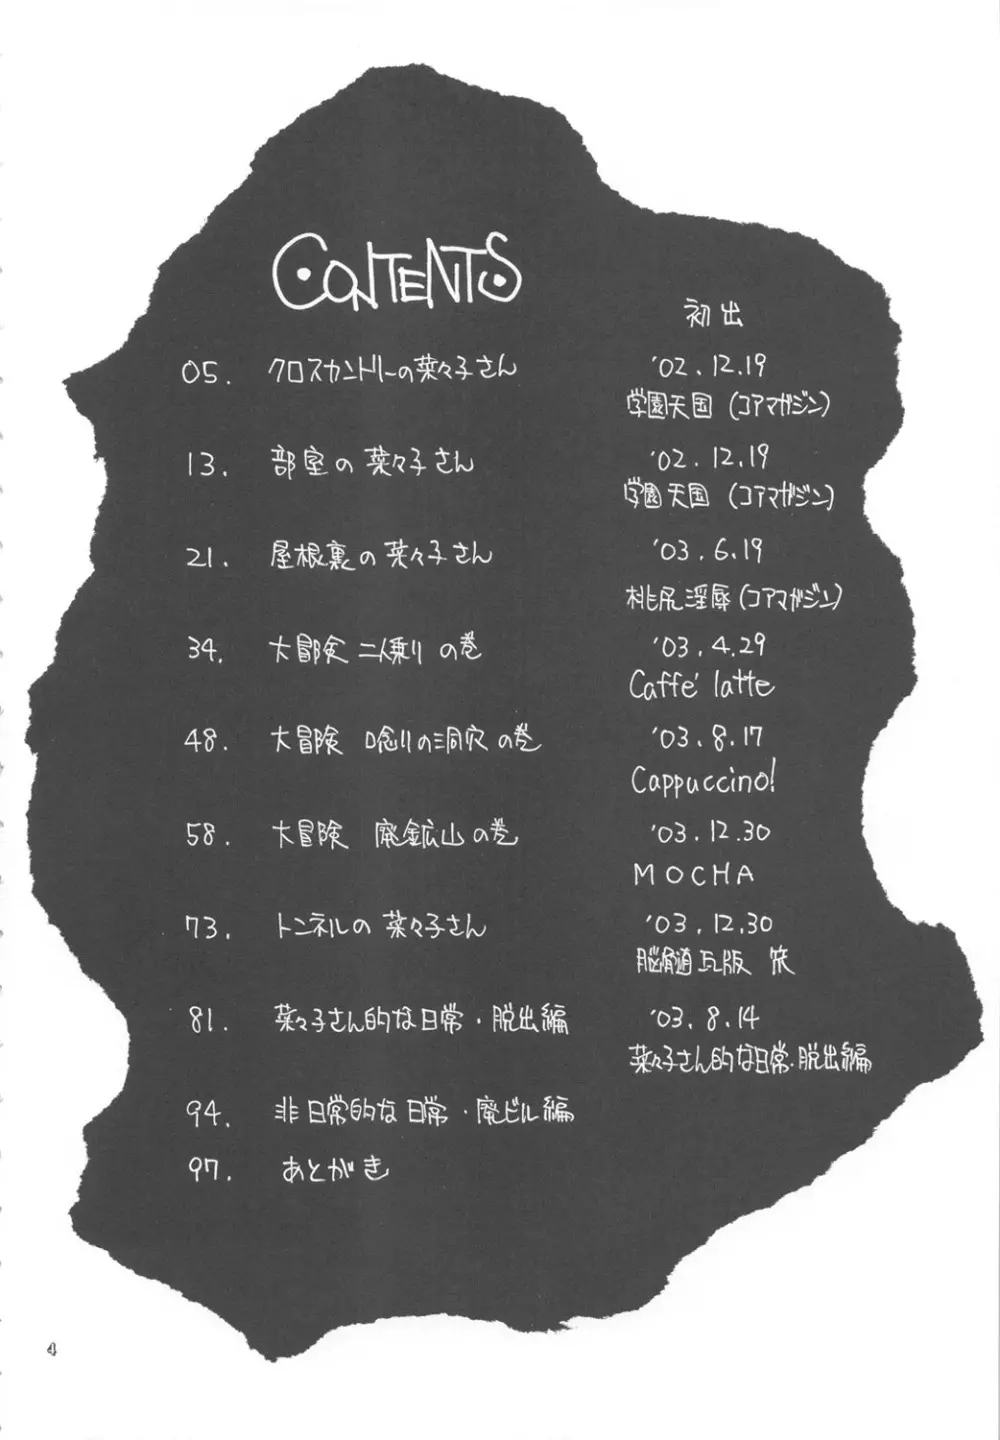 CONTENTS
初出
05. クロスカントリーの菜々子さん
'02.12.19
学園天国 (コアマガジン)
13. 部室の菜々子さん
'02.12.19
学園天国 (コアマガジン)
21. 屋根裏の菜々子さん
'03.6.19
桃尻淫辱 (コアマガジン)
34. 大冒険 二人乗り の巻
'03.4.29
Caffe' latte
48. 大冒険 唸りの洞穴 の巻
'03.8.17
Cappuccino!
58. 大冒険 廃鉱山 の巻
'03.12.30
MOCHA
73. トンネルの 菜々子さん
'03.12.30
脳髄瓦版 笑
81. 菜々子さん的な日常・脱出編
'03.8.14
菜々子さん的な日常・脱出編
94. 非日常的な日常・廃ビル編
97. あとがき
4